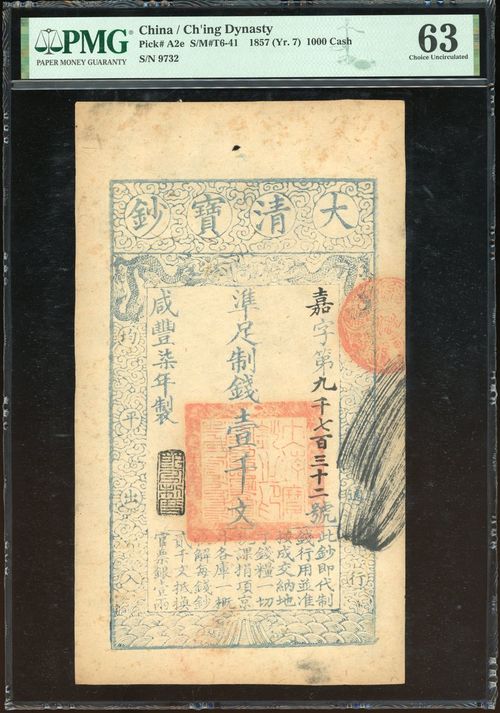 PMG
PAPER MONEY GUARANTY
China / Ch'ing Dynasty
Pick# A2e S/M#T6-41 1857 (Yr. 7) 1000 Cash
S/N 9732
63
Choice Uncirculated
大清寶鈔
嘉字第九千七百三十二號
準足制錢壹千文
咸豐柒年製
此鈔即代制
錢行用並准
按成交納地
丁錢糧一切
稅課捐項京
外各庫一概
收解每錢鈔
貳千文抵換
官票銀壹兩
行
均平出入